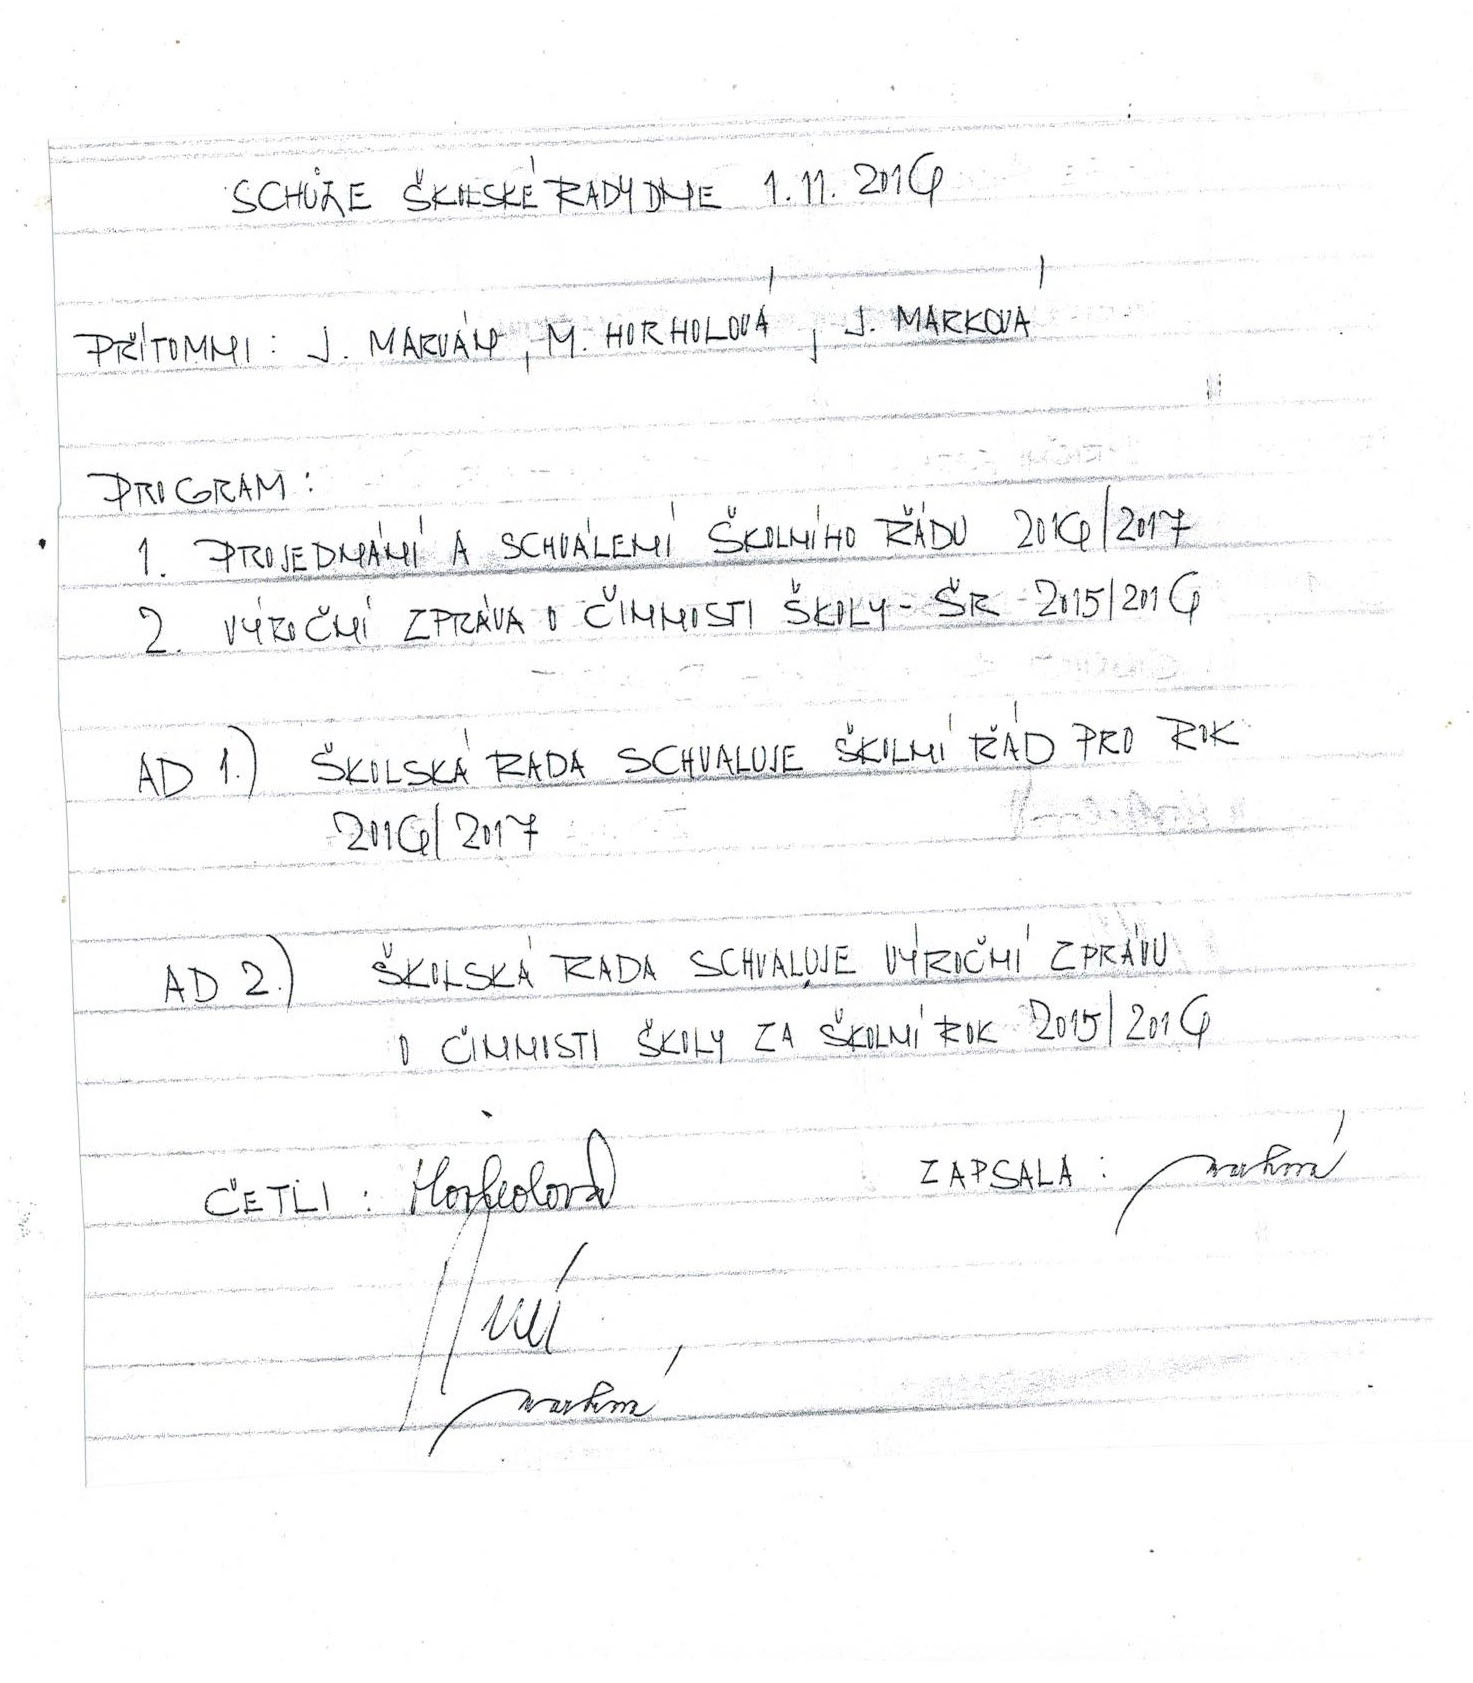 SCHŮZE ŠKOLSKÉ RADY DNE 1.11. 2016
PŘÍTOMNI: J. MARVÁN, M. HORHOLOVÁ, J. MARKOVÁ
PROGRAM:
1. PROJEDNÁNÍ A SCHVÁLENÍ ŠKOLNÍHO ŘÁDU 2016/2017
2. VÝROČNÍ ZPRÁVA O ČINNOSTI ŠKOLY - ŠR 2015/2016
AD 1.) ŠKOLSKÁ RADA SCHVALUJE ŠKOLNÍ ŘÁD PRO ROK
2016/2017
AD 2.) ŠKOLSKÁ RADA SCHVALUJE VÝROČNÍ ZPRÁVU
O ČINNOSTI ŠKOLY ZA ŠKOLNÍ ROK 2015/2016
ČETLI: Horholová ZAPSALA: Marková
Marková